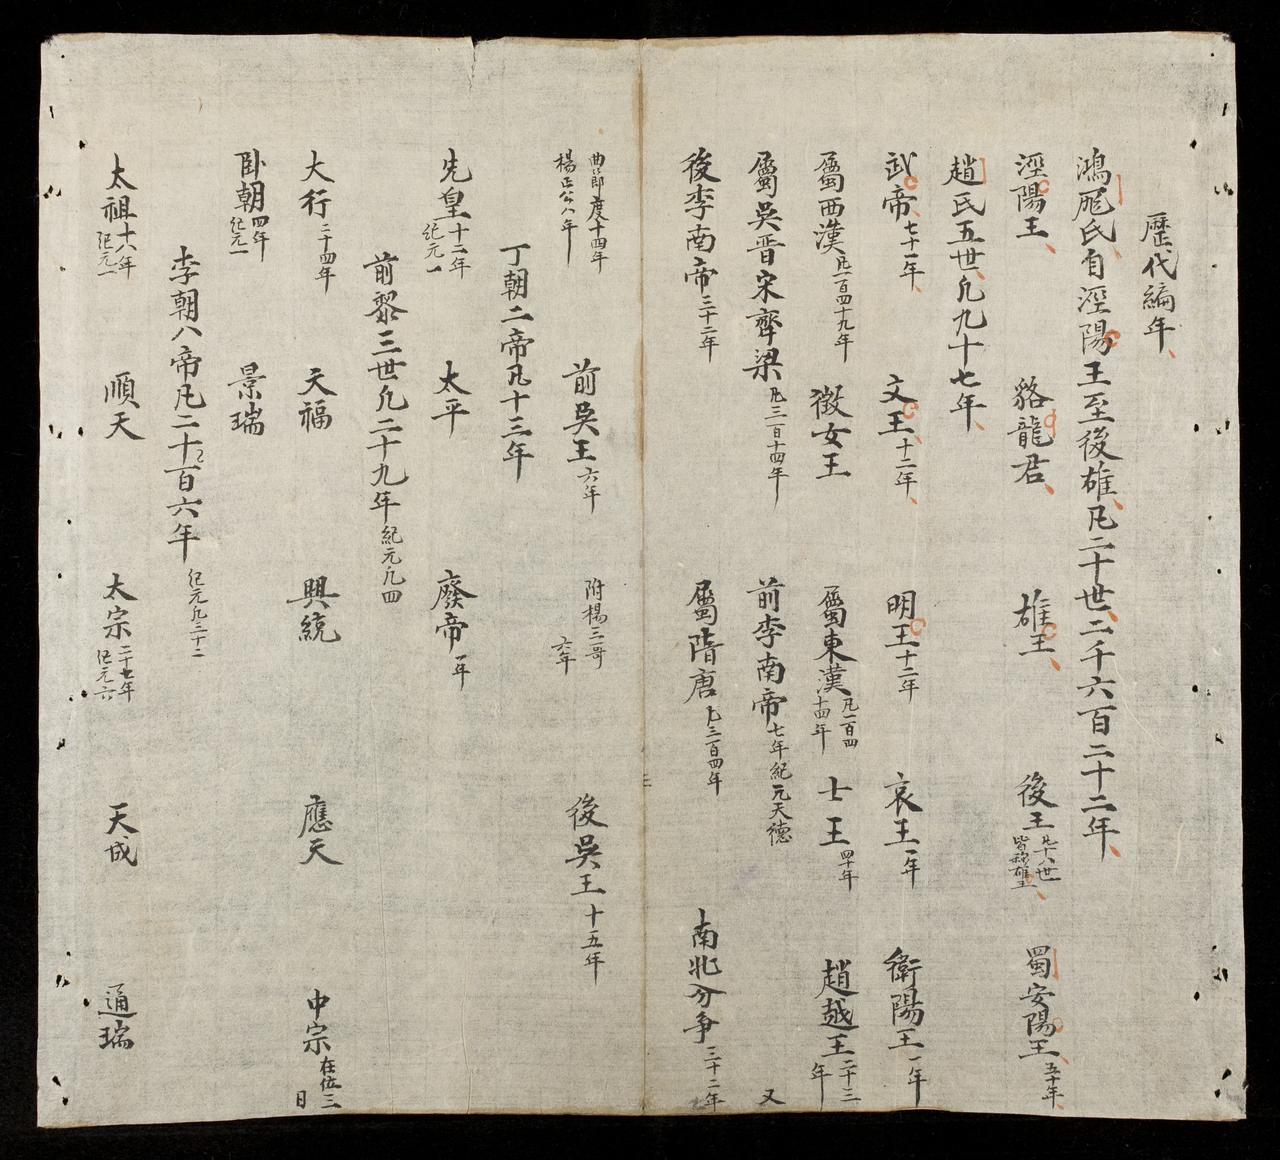 歷代編年
鴻厖氏自涇陽王至後雄凡二十世二千六百二十二年
涇陽王 貉龍君 雄王 後王凡十八世皆称雄王 蜀安陽王五十年
趙氏五世凢九十七年
武帝七十一年 文王十二年 明王十二年 哀王一年 衛陽王一年
屬西漢凡一百四十九年 徵女王 屬東漢凡一百四十四年 士王四十年 趙越王二十三年
屬吳晋宋齊梁凡三百十四年 前李南帝七年紀元天德 又
後李南帝三十二年 屬隋唐凡三百四年 南北分争三十二年
曲節度十四年 楊正公八年 前吳王六年 附楊三哥六年 後吳王十五年
丁朝二帝凡十三年
先皇十二年紀元一 太平 廢帝一年
前黎三世凢二十九年紀元凢四
大行二十四年 天福 興統 應天 中宗在位三日
卧朝四年紀元一 景瑞
李朝八帝凡二十百六年 紀元凢三十二
太祖十八年紀元一 順天 太宗二十七年紀元六 天成 通瑞